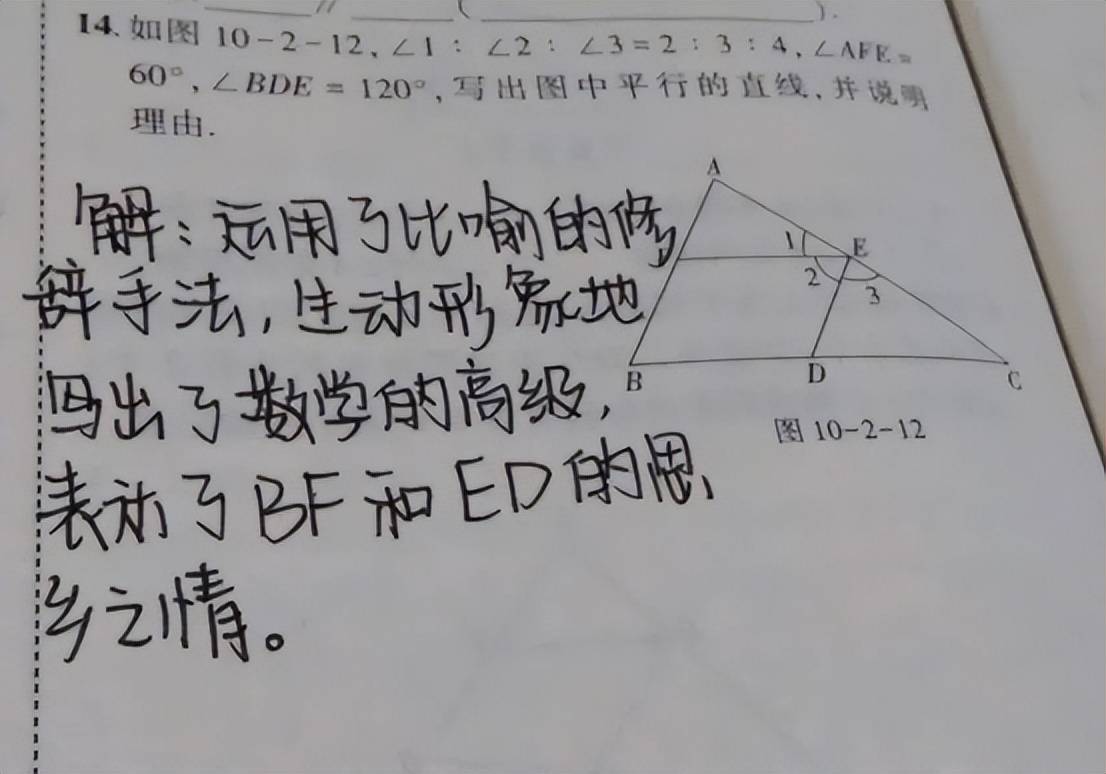 14. 如图 10-2-12, ∠1 : ∠2 : ∠3 = 2 : 3 : 4, ∠AFE =
60°, ∠BDE = 120°, 写出图中平行的直线, 并说明
理由.
解：运用了比喻的修
辞手法, 生动形象地
写出了数学的高级,
表达了BF和ED的思
乡之情。
A
1
E
2
3
B
D
C
图 10-2-12